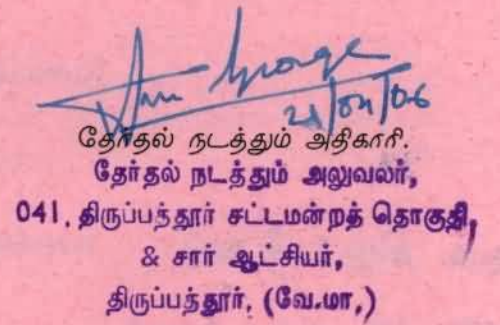 Ann George
21/04/06
தேர்தல் நடத்தும் அதிகாரி.
தேர்தல் நடத்தும் அலுவலர்,
041, திருப்பத்தூர் சட்டமன்றத் தொகுதி,
& சார் ஆட்சியர்,
திருப்பத்தூர், (வே.மா,)